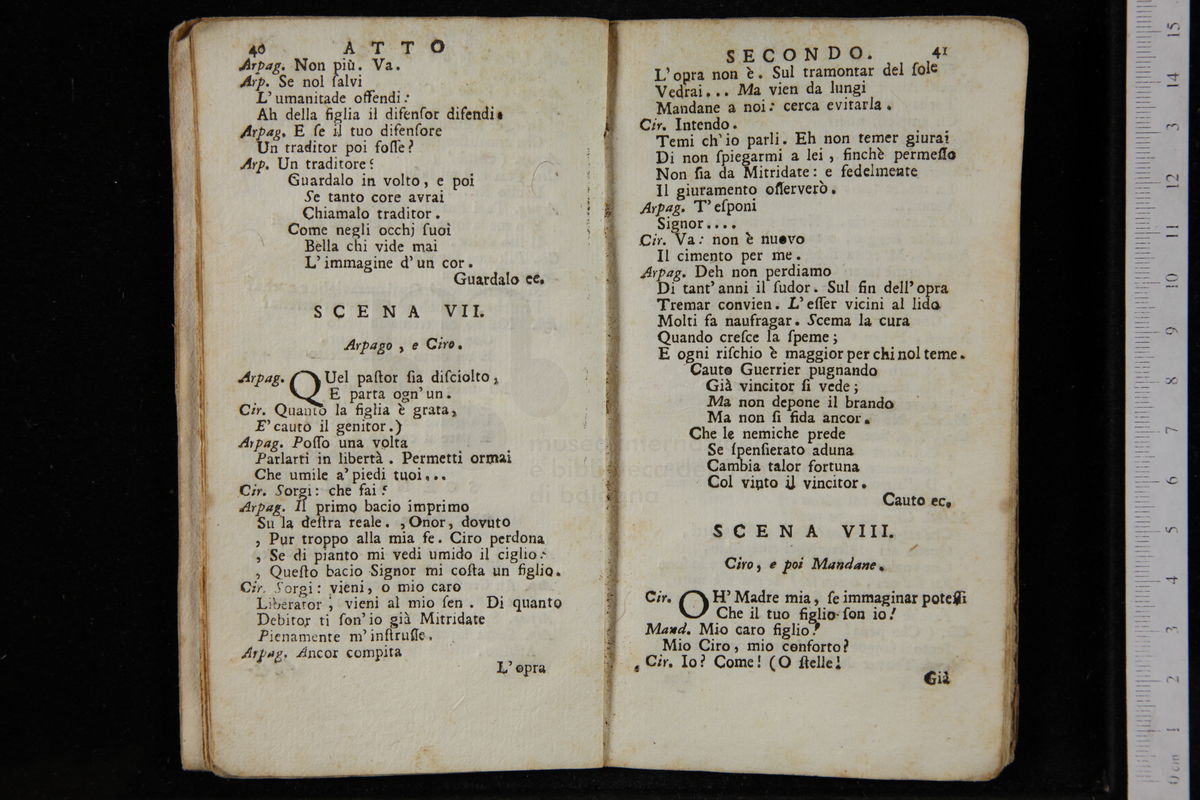 40 ATTO
Arpag. Non più. Va.
Arp. Se nol ſalvi
L' umanitade offendi:
Ah della figlia il difenſor difendi.
Arpag. E ſe il tuo difenſore
Un traditor poi foſſe?
Arp. Un traditore?
Guardalo in volto, e poi
Se tanto core avrai
Chiamalo traditor.
Come negli occhj ſuoi
Bella chi vide mai
L' immagine d' un cor.
Guardalo ec.
SCENA VII.
Arpago, e Ciro.
Arpag. QUel paſtor ſia diſciolto,
E parta ogn' un.
Cir. Quanto la figlia è grata,
E' cauto il genitor.)
Arpag. Poſſo una volta
Parlarti in libertà. Permetti ormai
Che umile a' piedi tuoi...
Cir. Sorgi: che fai?
Arpag. Il primo bacio imprimo
Su la deſtra reale. ‚ Onor, dovuto
‚ Pur troppo alla mia fe. Ciro perdona
‚ Se di pianto mi vedi umido il ciglio:
‚ Queſto bacio Signor mi coſta un figlio.
Cir. Sorgi: vieni, o mio caro
Liberator, vieni al mio ſen. Di quanto
Debitor ti ſon' io già Mitridate
Pienamente m' inſtruſſe.
Arpag. Ancor compita
L' opra
SECONDO. 41
L' opra non è. Sul tramontar del ſole
Vedrai... Ma vien da lungi
Mandane a noi: cerca evitarla.
Cir. Intendo.
Temi ch' io parli. Eh non temer giurai
Di non ſpiegarmi a lei, finchè permeſſo
Non ſia da Mitridate: e fedelmente
Il giuramento oſſerverò.
Arpag. T' eſponi
Signor....
Cir. Va: non è nuovo
Il cimento per me.
Arpag. Deh non perdiamo
Di tant' anni il ſudor. Sul fin dell' opra
Tremar convien. L' eſſer vicini al lido
Molti fa naufragar. Scema la cura
Quando creſce la ſpeme;
E ogni riſchio è maggior per chi nol teme.
Cauto Guerrier pugnando
Già vincitor ſi vede;
Ma non depone il brando
Ma non ſi fida ancor.
Che le nemiche prede
Se ſpenſierato aduna
Cambia talor fortuna
Col vinto il vincitor.
Cauto ec.
SCENA VIII.
Ciro, e poi Mandane.
Cir. OH' Madre mia, ſe immaginar poteſſi
Che il tuo figlio ſon io!
Mand. Mio caro figlio!
Mio Ciro, mio conforto?
Cir. Io? Come! (O ſtelle!
Già